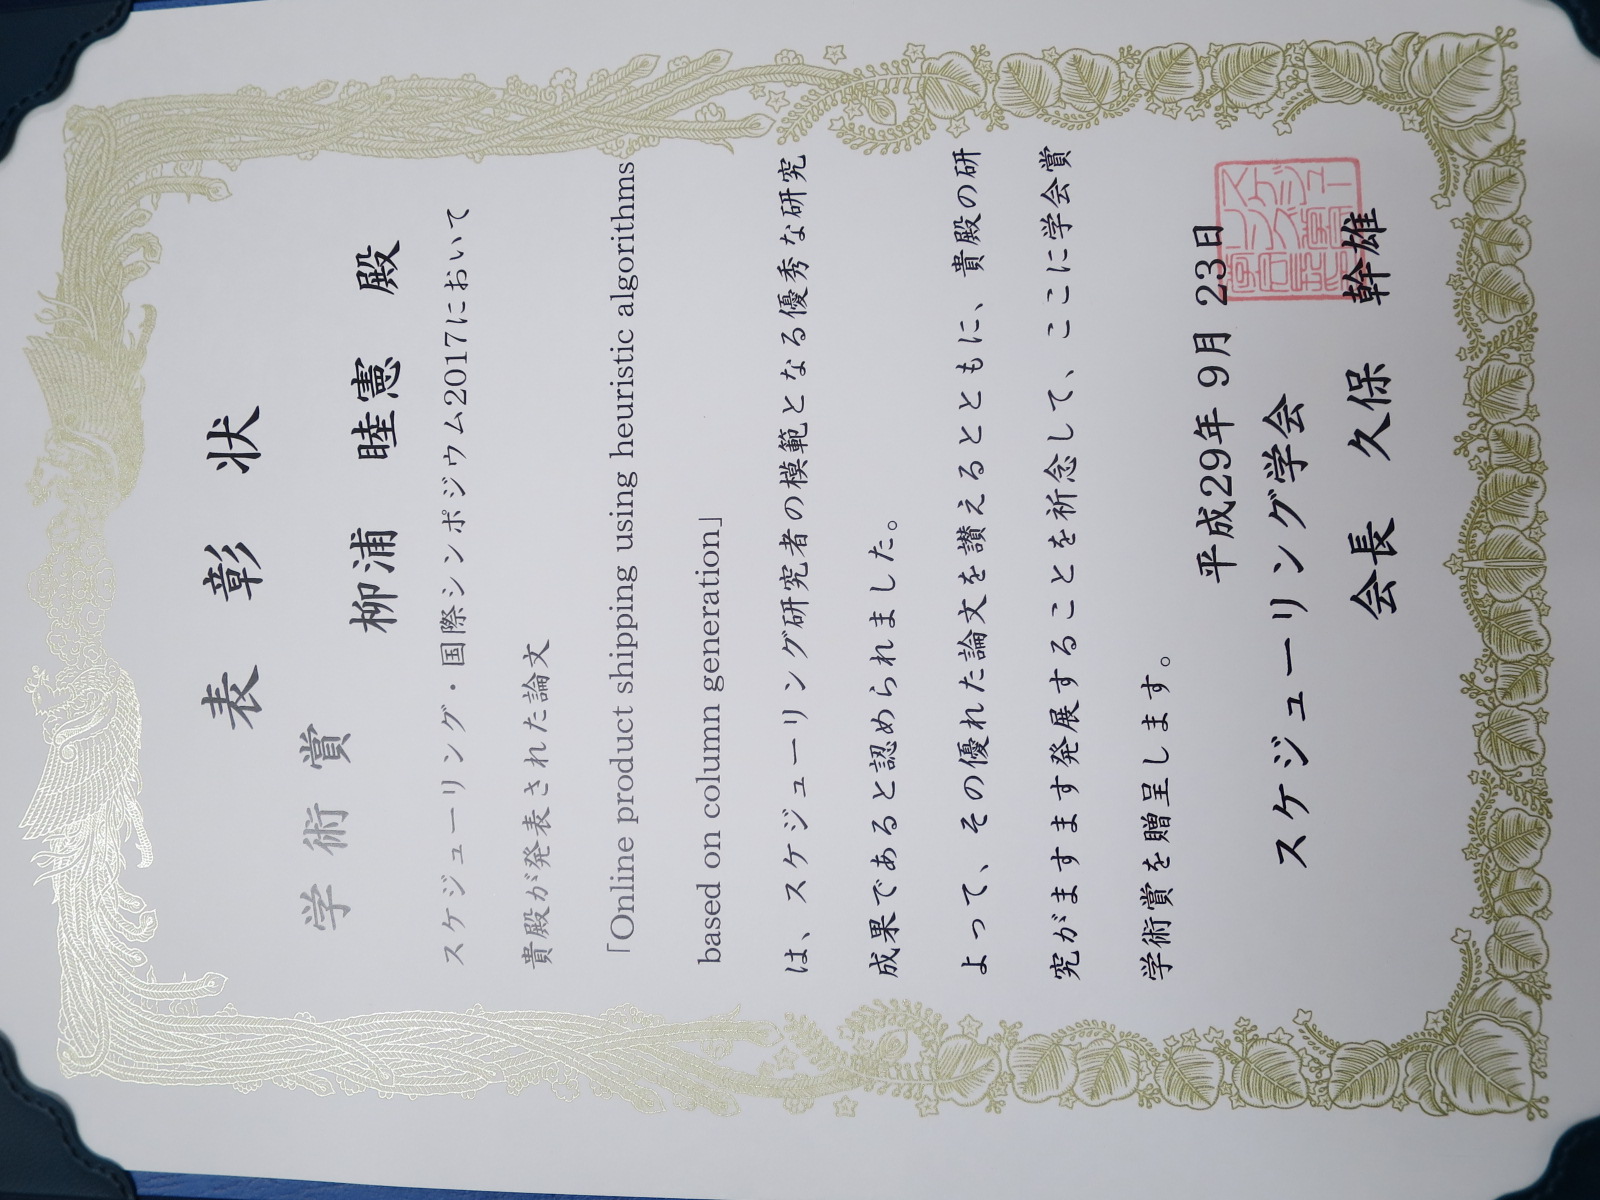 表彰状
学術賞
柳浦 睦憲 殿
スケジューリング・国際シンポジウム2017において
貴殿が発表された論文
「Online product shipping using heuristic algorithms
based on column generation」
は、スケジューリング研究者の模範となる優秀な研究
成果であると認められました。
よって、その優れた論文を讃えるとともに、貴殿の研
究がますます発展することを祈念して、ここに学会賞
学術賞を贈呈します。
平成29年 9月 23日
スケジューリング学会
会長 久保 幹雄